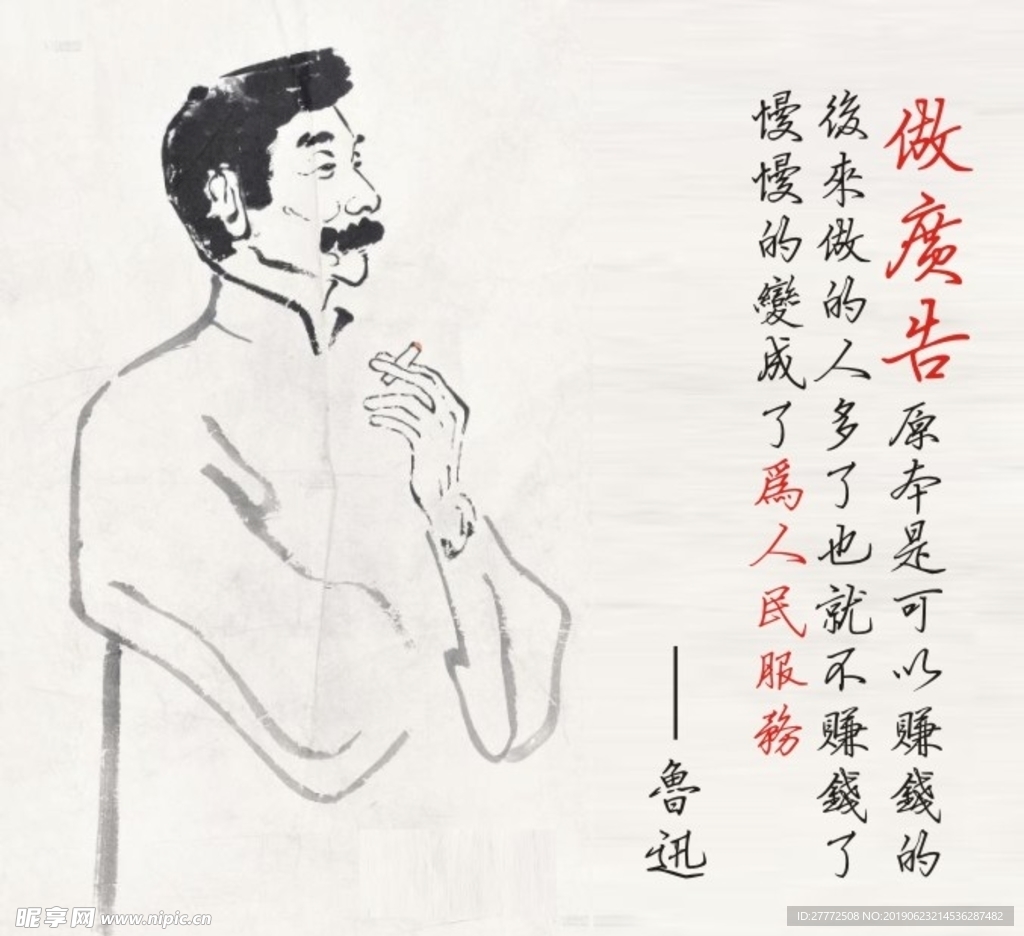 做廣告原本是可以賺錢的
後來做的人多了也就不賺錢了
慢慢的變成了爲人民服務
——魯迅
昵享网 www.nipic.cn
ID:27772508 NO:20190623214536287482